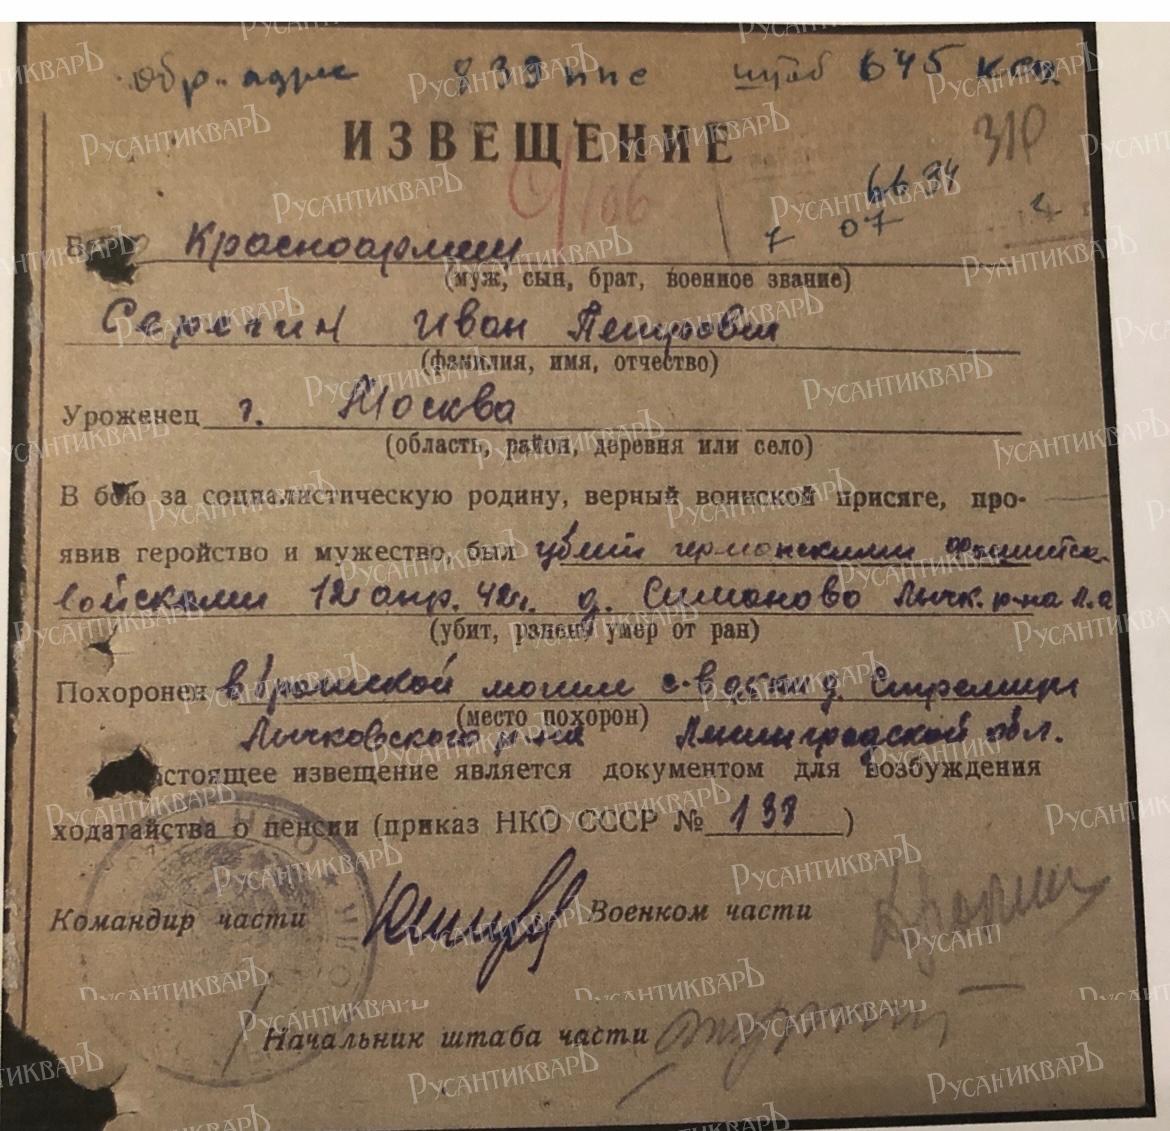 обр. адрес 939 ппс штаб 645
ИЗВЕЩЕНИЕ
310
106
6634
7 07
В Красноармеец
(муж, сын, брат, военное звание)
Иван Петрович
(фамилия, имя, отчество)
Уроженец г. Москва
(область, район, деревня или село)
В бою за социалистическую родину, верный воинской присяге, про-
явив геройство и мужество, был убит германскими фашистск.
войсками 12 апр. 42г. д. Симоново Лычк. р-на Л.о
(убит, ранен, умер от ран)
Похоронен в братской могиле д.
(место похорон)
Лычковского р-на Ленинградской обл.
астоящее извещение является документом для возбуждения
ходатайства о пенсии (приказ НКО СССР № 138)
Командир части Военком части
НКО
Начальник штаба части
РусАнтикварЪ